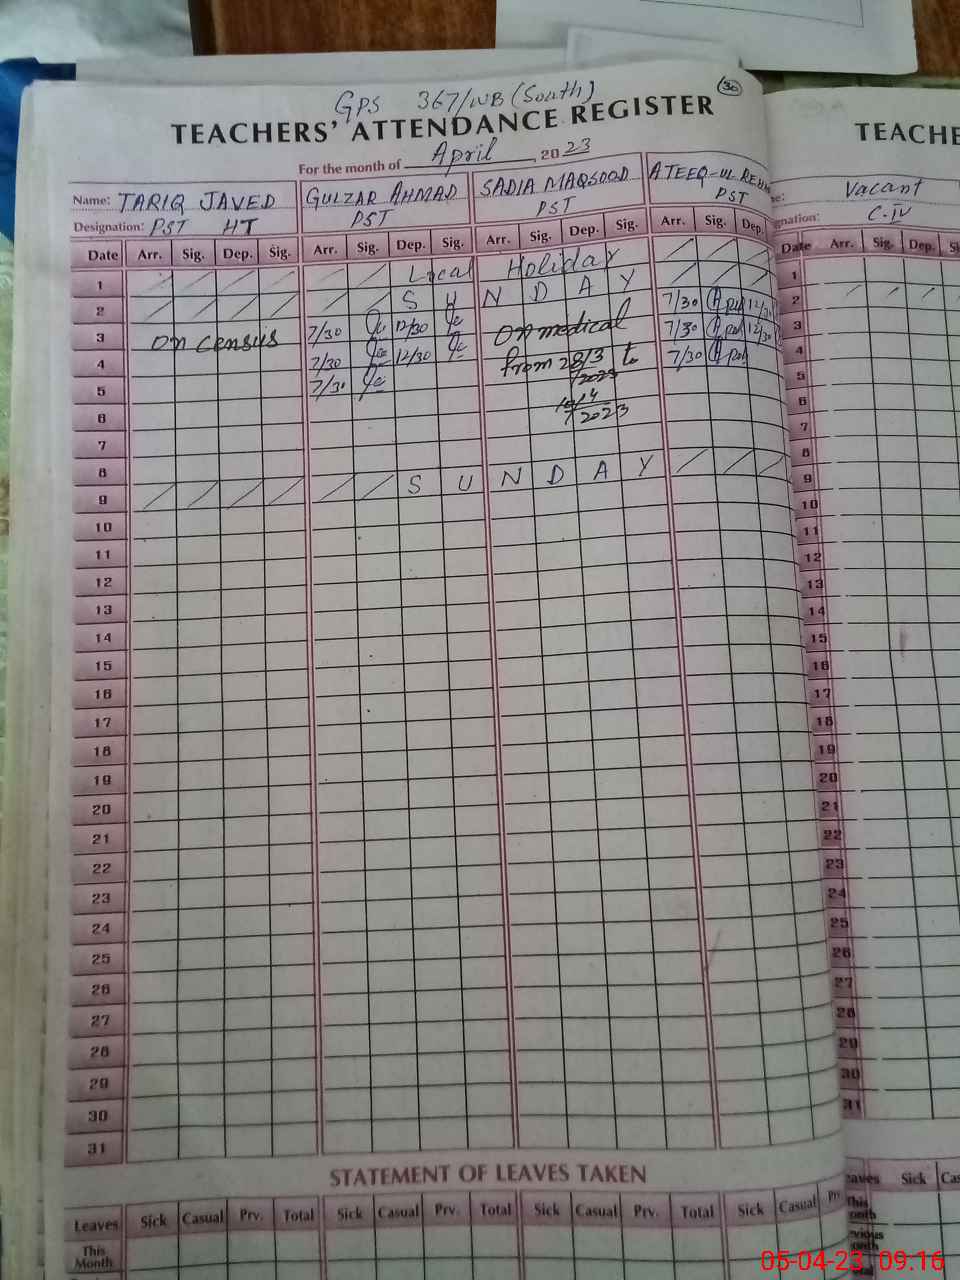 30
GPS 367/WB (South)
TEACHERS' ATTENDANCE REGISTER
For the month of April, 2023
Name: TARIQ JAVED GULZAR AHMAD SADIA MAQSOOD ATEEQ-UL-REH
Designation: PST HT PST PST PST
Date Arr. Sig. Dep. Sig. Arr. Sig. Dep. Sig. Arr. Sig. Dep. Sig. Arr. Sig. Dep.
1 Local Holiday
2 S U N D A Y
3 on census 7/30 12/30 on medical 7/30 12/30
4 7/30 12/30 from 28/3 to 7/30 12/30
5 7/30 /2023 7/30
6 10/4
/2023
7
8
9 S U N D A Y
10
11
12
13
14
15
16
17
18
19
20
21
22
23
24
25
26
27
28
29
30
31
STATEMENT OF LEAVES TAKEN
Leaves Sick Casual Prv. Total Sick Casual Prv. Total Sick Casual Prv. Total Sick Casual Prv
This
Month
TEACHE
Vacant
gnation: C.IV
Date Arr. Sig. Dep. Si
1
2
3
4
5
6
7
8
9
10
11
12
13
14
15
16
17
18
19
20
21
22
23
24
25
26
27
28
29
30
31
eaves Sick Cas
This
onth
vious
onth
otal
05-04-23 09:16